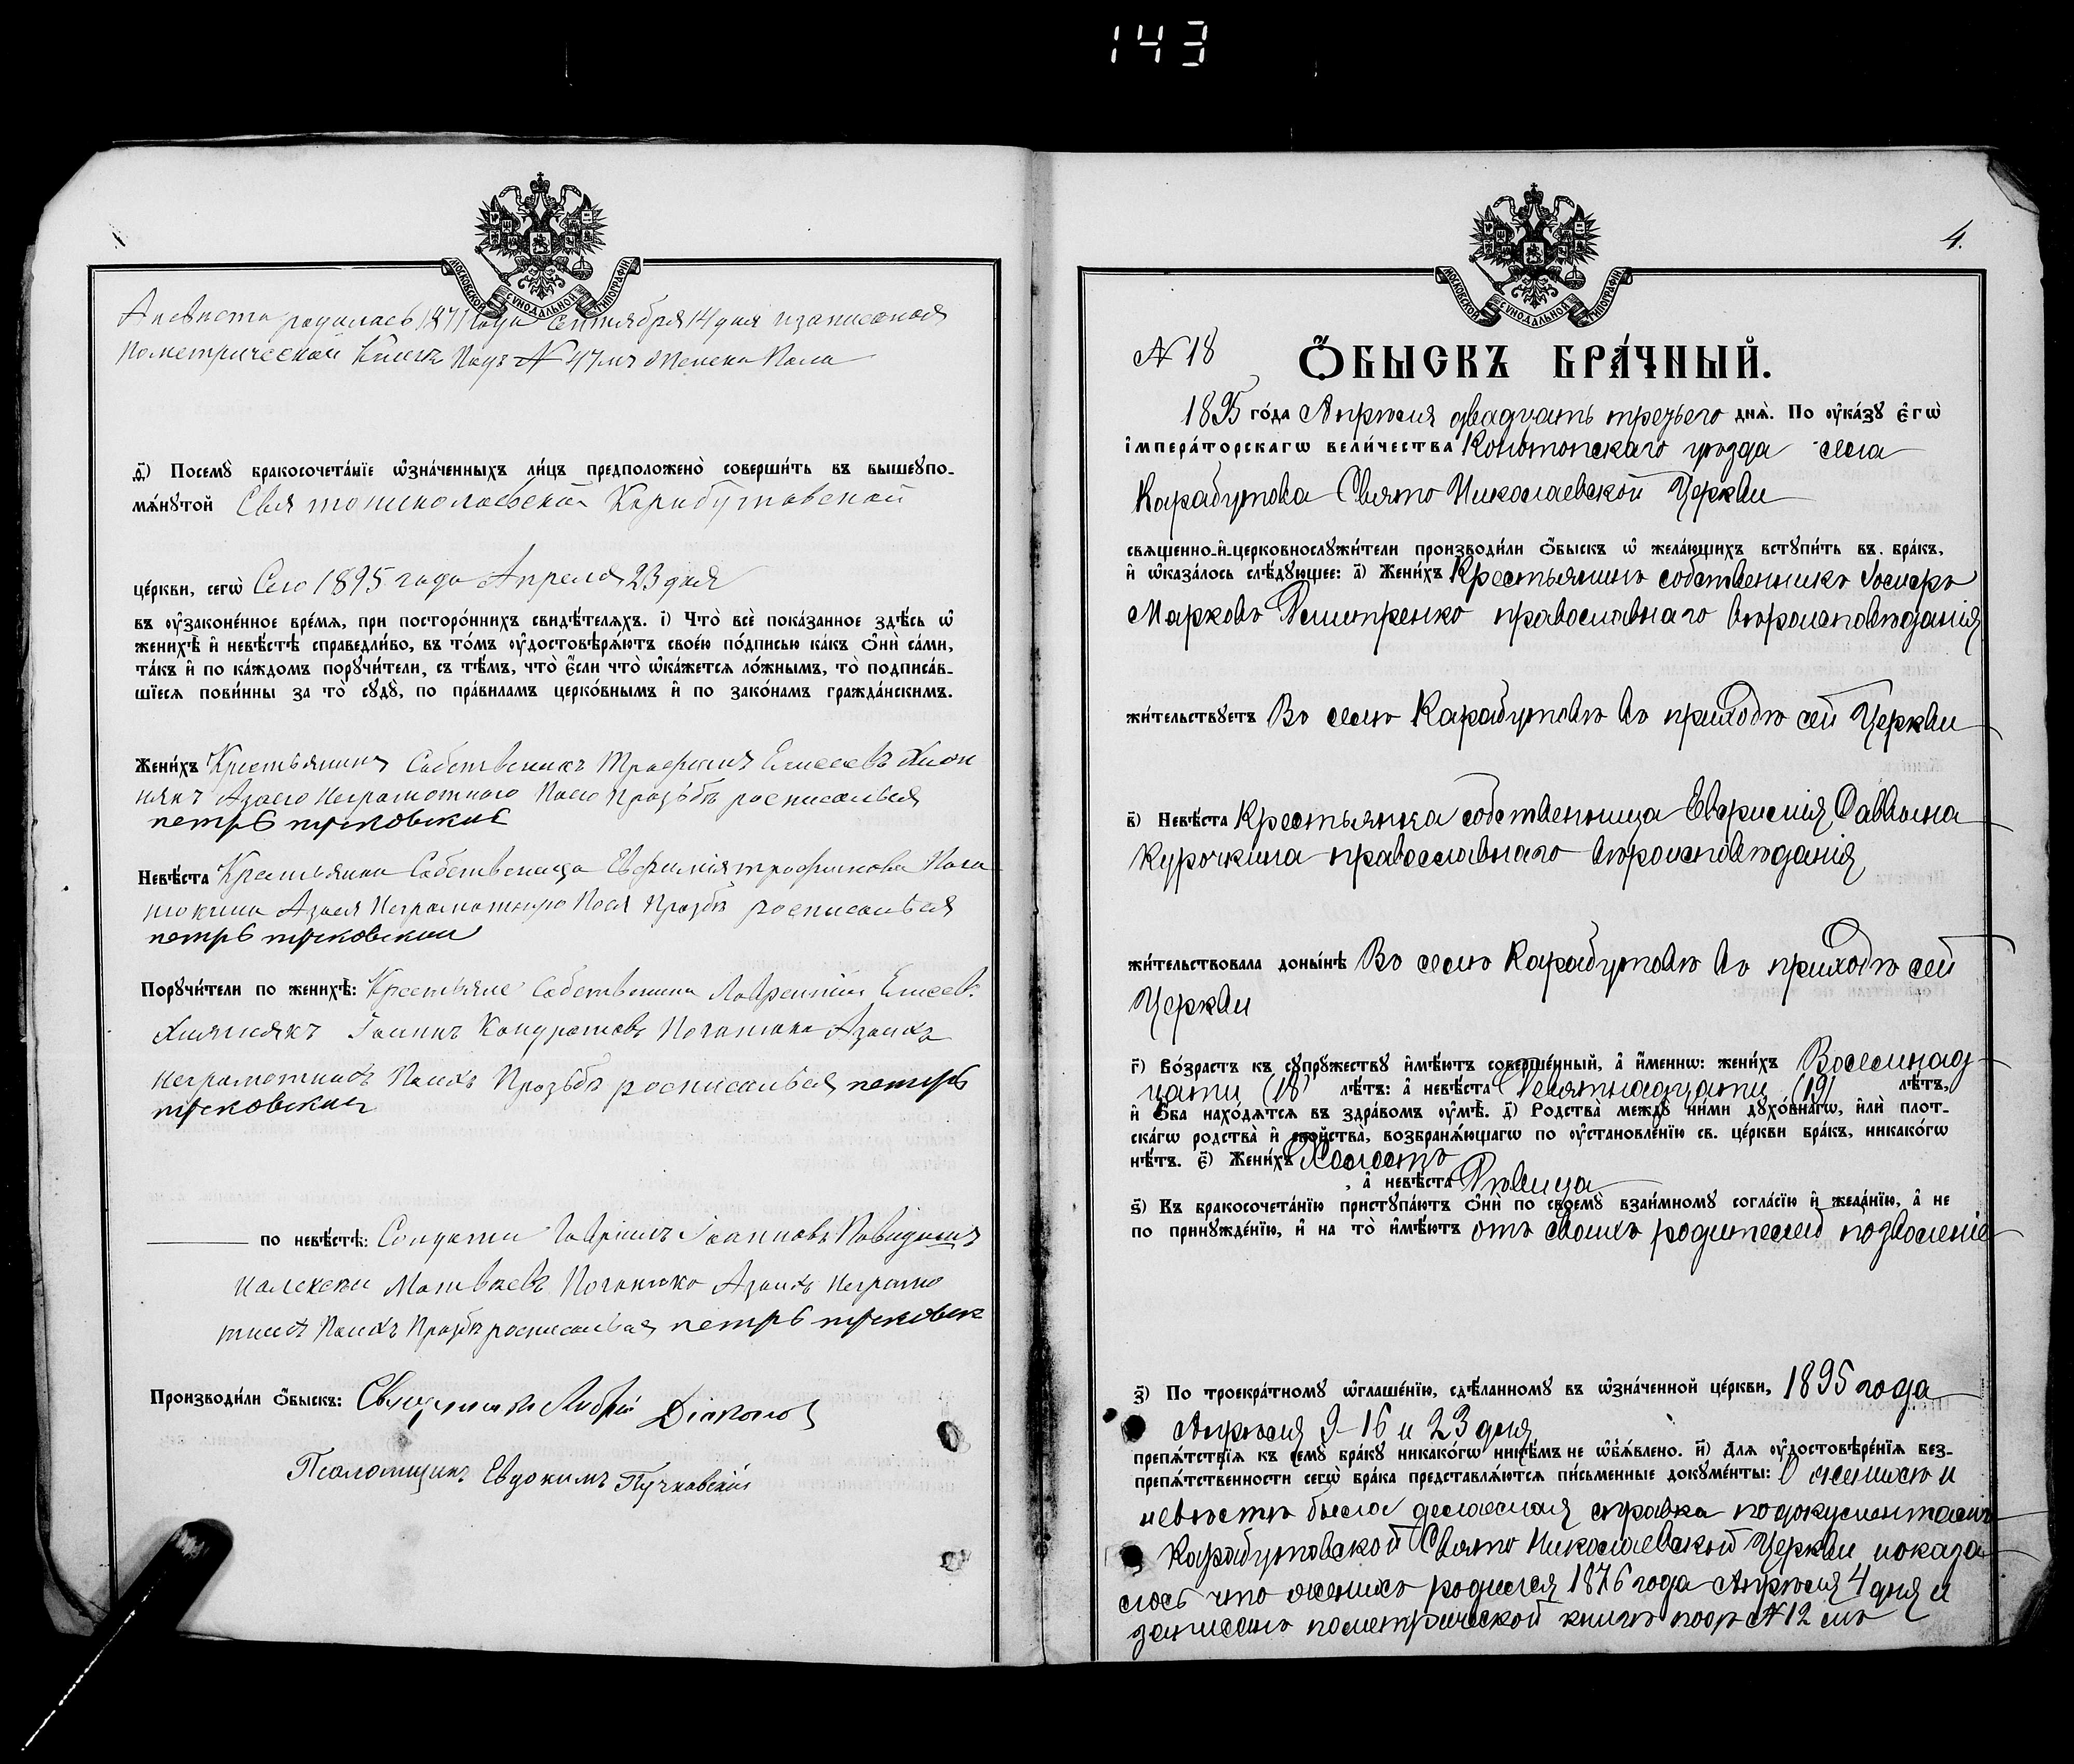 143
МОСКОВСКОЙ СѴНОДАЛЬНОЙ ТИПОГРАФІИ
А невѣста родилась 1871 года Сентября 14 дня и записаная
по метрической Книгѣ подъ № 47мъ женска пола
д҃) Посемꙋ̀ бракосочета́нїе ѡ҆зна́ченныхъ ли́цъ предположено̀ соверши́ть въ вышеꙋпо-
мѧ́нꙋтой Свято николаевской Карабутовской
це́ркви, сегѡ̀ Сего 1895 года Апреля 23 дня
въ ᲂу҆зако́ненное вре́мѧ, при посторо́ннихъ свидѣ́телѧхъ. і҃) Что̀ всѐ пока́занное здѣ́сь ѡ҆
женихѣ̀ и҆ невѣ́стѣ справедли́во, въ то́мъ ᲂу҆достовѣрѧ́ютъ свое́ю по́дписью ка́къ ѻ҆нѝ са́ми,
та́къ и҆ по ка́ждомъ порꙋчи́тели, съ тѣ́мъ, что̀ є҆́сли что̀ ѡ҆ка́жетсѧ ло́жнымъ, то̀ подписа́в-
шїесѧ пови́нны за то̀ сꙋдꙋ̀, по пра́виламъ церко́внымъ и҆ по зако́намъ гражда́нскимъ.
Жени́хъ Крестьянинъ Собственикъ Трофимъ Елисеевъ
Азаего Неграмотного Поего Прозьбѣ росписалься
петръ пучковский
Невѣ́ста Крестьянка Собственица Евфимія трофимова
Азаея Неграмотную Поея Прозбѣ росписалься
петръ пучковский
Порꙋчи́тели по женихѣ̀: Крестьяне Собственики Лаврентий Елисеев.
Іоанъ Кондратовъ Азаихъ
неграмотныхъ Поихъ Прозьбѣ росписалься петръ
пучковский
по невѣ́стѣ: Солдаты Гавріилъ Іоанновъ
иалексѣй Матвѣевъ Азаихъ Неграмо
тныхъ Поихъ Прозбѣ росписалься петръ пучковск
Производи́ли ѻ҆́быскъ: Священникъ Діаконов
Псаломщикъ Евдокимъ Пучковскій
4.
МОСКОВСКОЙ СѴНОДАЛЬНОЙ ТИПОГРАФІИ
№ 18
Ѻ҆́БЫСКЪ БРА́ЧНЫЙ.
1895 го́да Апрѣля двадцать третьего днѧ̀. По ᲂу҆ка́зꙋ є҆гѡ̀
і҆мпера́торскагѡ вели́чества Конотопскаго уѣзда села
Карабутова Свято Николаевской Церкви
свѧще́нно-и҆-церковнослꙋжи́тели производи́ли ѻ҆́быскъ ѡ҆ жела́ющихъ встꙋпи́ть въ бра́къ,
и҆ ѡ҆каза́лось слѣ́дꙋющее: а҃) Жени́хъ Крестьянинъ собственникъ Іосифъ
Марковъ Дмитренко православнаго вѣроисповѣданія
жи́тельствꙋетъ Въ селѣ Карабутовѣ въ приходѣ сей Церкви
в҃) Невѣ́ста Крестьянка собственница Евфимія Саввына
Курочкина православнаго вѣроисповѣданія
жи́тельствовала доны́нѣ Въ селѣ Карабутовѣ въ приходѣ сей
Церкви
г҃) Во́зрастъ къ сꙋпрꙋ́жествꙋ и҆мѣ́ютъ соверше́нный, а҆ и҆́менно: жени́хъ Восемнад
цати (18) лѣ́тъ: а҆ невѣ́ста Девятнадцати (19) лѣ́тъ,
и҆ ѻ҆́ба нахо́дѧтсѧ въ здра́вомъ ᲂу҆мѣ̀. д҃) Родства̀ междꙋ̀ ни́ми дꙋхо́внагѡ, и҆лѝ плот-
ска́гѡ родства̀ и҆ сво́йства, возбранѧ́ющагѡ по ᲂу҆становле́нїю св. це́ркви бра́къ, никако́гѡ
нѣ́тъ. є҃) Жени́хъ Холостъ
, а҆ невѣ́ста Дѣвица
ѕ҃) Къ бракосочета́нїю пристꙋпа́ютъ ѻ҆нѝ по своемꙋ̀ взаи́мномꙋ согла́сїю и҆ жела́нїю, а҆ не
по принꙋжде́нїю, и҆ на то̀ и҆мѣ́ютъ отъ своихъ родителей позволеніе
з҃) По троекра́тномꙋ ѡ҆глаше́нїю, сдѣ́ланномꙋ въ ѡ҆зна́ченной це́ркви, 1895 года
Апрѣля 9-16 и 23 дня
препѧ́тствїѧ къ семꙋ̀ бра́кꙋ никако́гѡ никѣ́мъ не ѡ҆б̾ѧ́влено. и҃) Длѧ ᲂу҆достовѣре́нїѧ без-
препѧ́тственности сегѡ̀ бра́ка представлѧ́ютсѧ пи́сьменные докꙋме́нты: О женихѣ и
невѣстѣ была делаемая справка подокументамъ
Карабутовской Свято Николаевской Церкви иоказа
лось что женихъ родился 1876 года Апрѣля 4 дня и
записанъ пометрической книгѣ подъ № 12 мъ